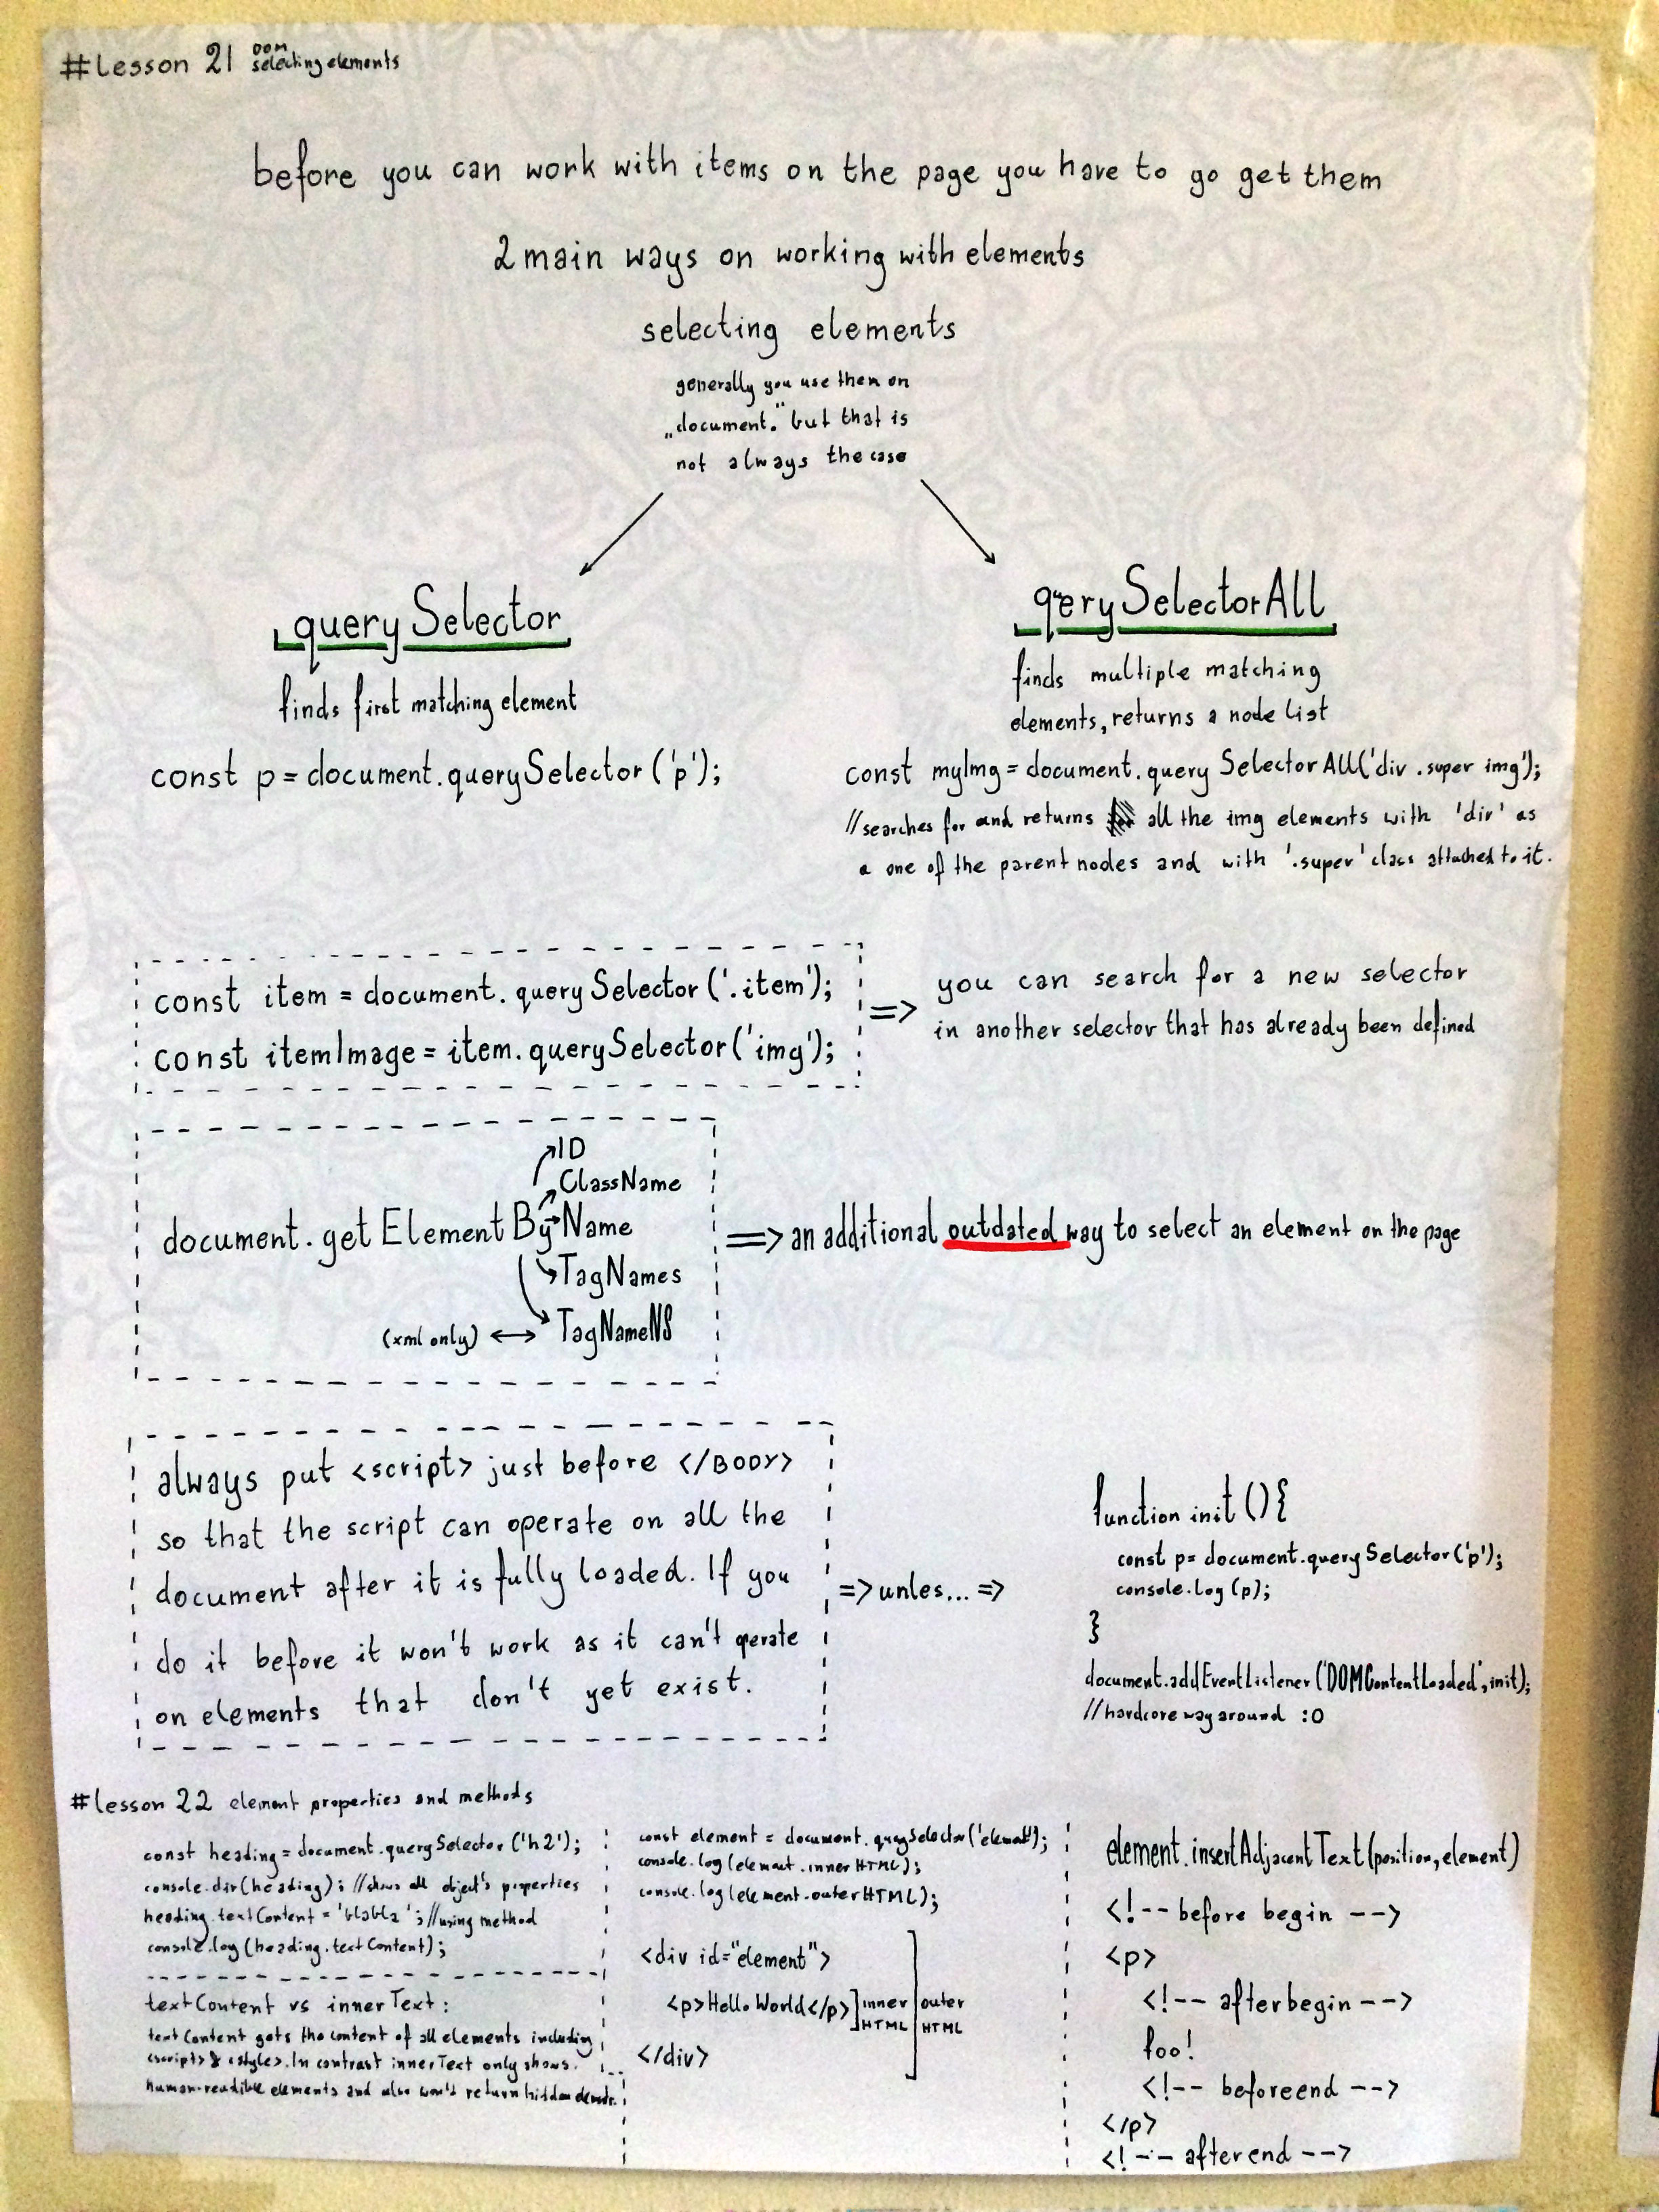 #Lesson 21 DOM selecting elements
before you can work with items on the page you have to go get them
2 main ways on working with elements
selecting elements
generally you use them on
„document." but that is
not always the case
querySelector
finds first matching element
const p = document.querySelector('p');
qerySelectorAll
finds multiple matching
elements, returns a node list
const myImg = document.querySelectorAll('div .super img');
//searches for and returns all the img elements with 'div' as
a one of the parent nodes and with '.super' class attached to it.
const item = document.querySelector('.item');
const itemImage = item.querySelector('img');
=> you can search for a new selector
in another selector that has already been defined
ID
ClassName
document.getElementByName
TagNames
(xml only) <-> TagNameNS
=> an additional outdated way to select an element on the page
always put <script> just before </BODY>
so that the script can operate on all the
document after it is fully loaded. If you
do it before it won't work as it can't operate
on elements that don't yet exist.
=> unles... =>
function init(){
const p= document.querySelector('p');
console.log(p);
}
document.addEventListener('DOMContentLoaded', init);
//hardcore way around :O
#lesson 22 element properties and methods
const heading = document.querySelector('h2');
console.dir(heading); //shows all object's properties
heading.textContent = 'blabla'; //using method
console.log(heading.textContent);
textContent vs innerText:
textContent gets the content of all elements including
<script> & <style>. In contrast innerText only shows
human-readible elements and also would return hidden
const element = document.querySelector('element');
console.log(element.innerHTML);
console.log(element.outerHTML);
<div id="element">
<p>Hello World</p> inner HTML outer HTML
</div>
element.insertAdjacentText(position, element)
<!-- before begin -->
<p>
<!-- afterbegin -->
foo!
<!-- beforeend -->
</p>
<!-- afterend -->